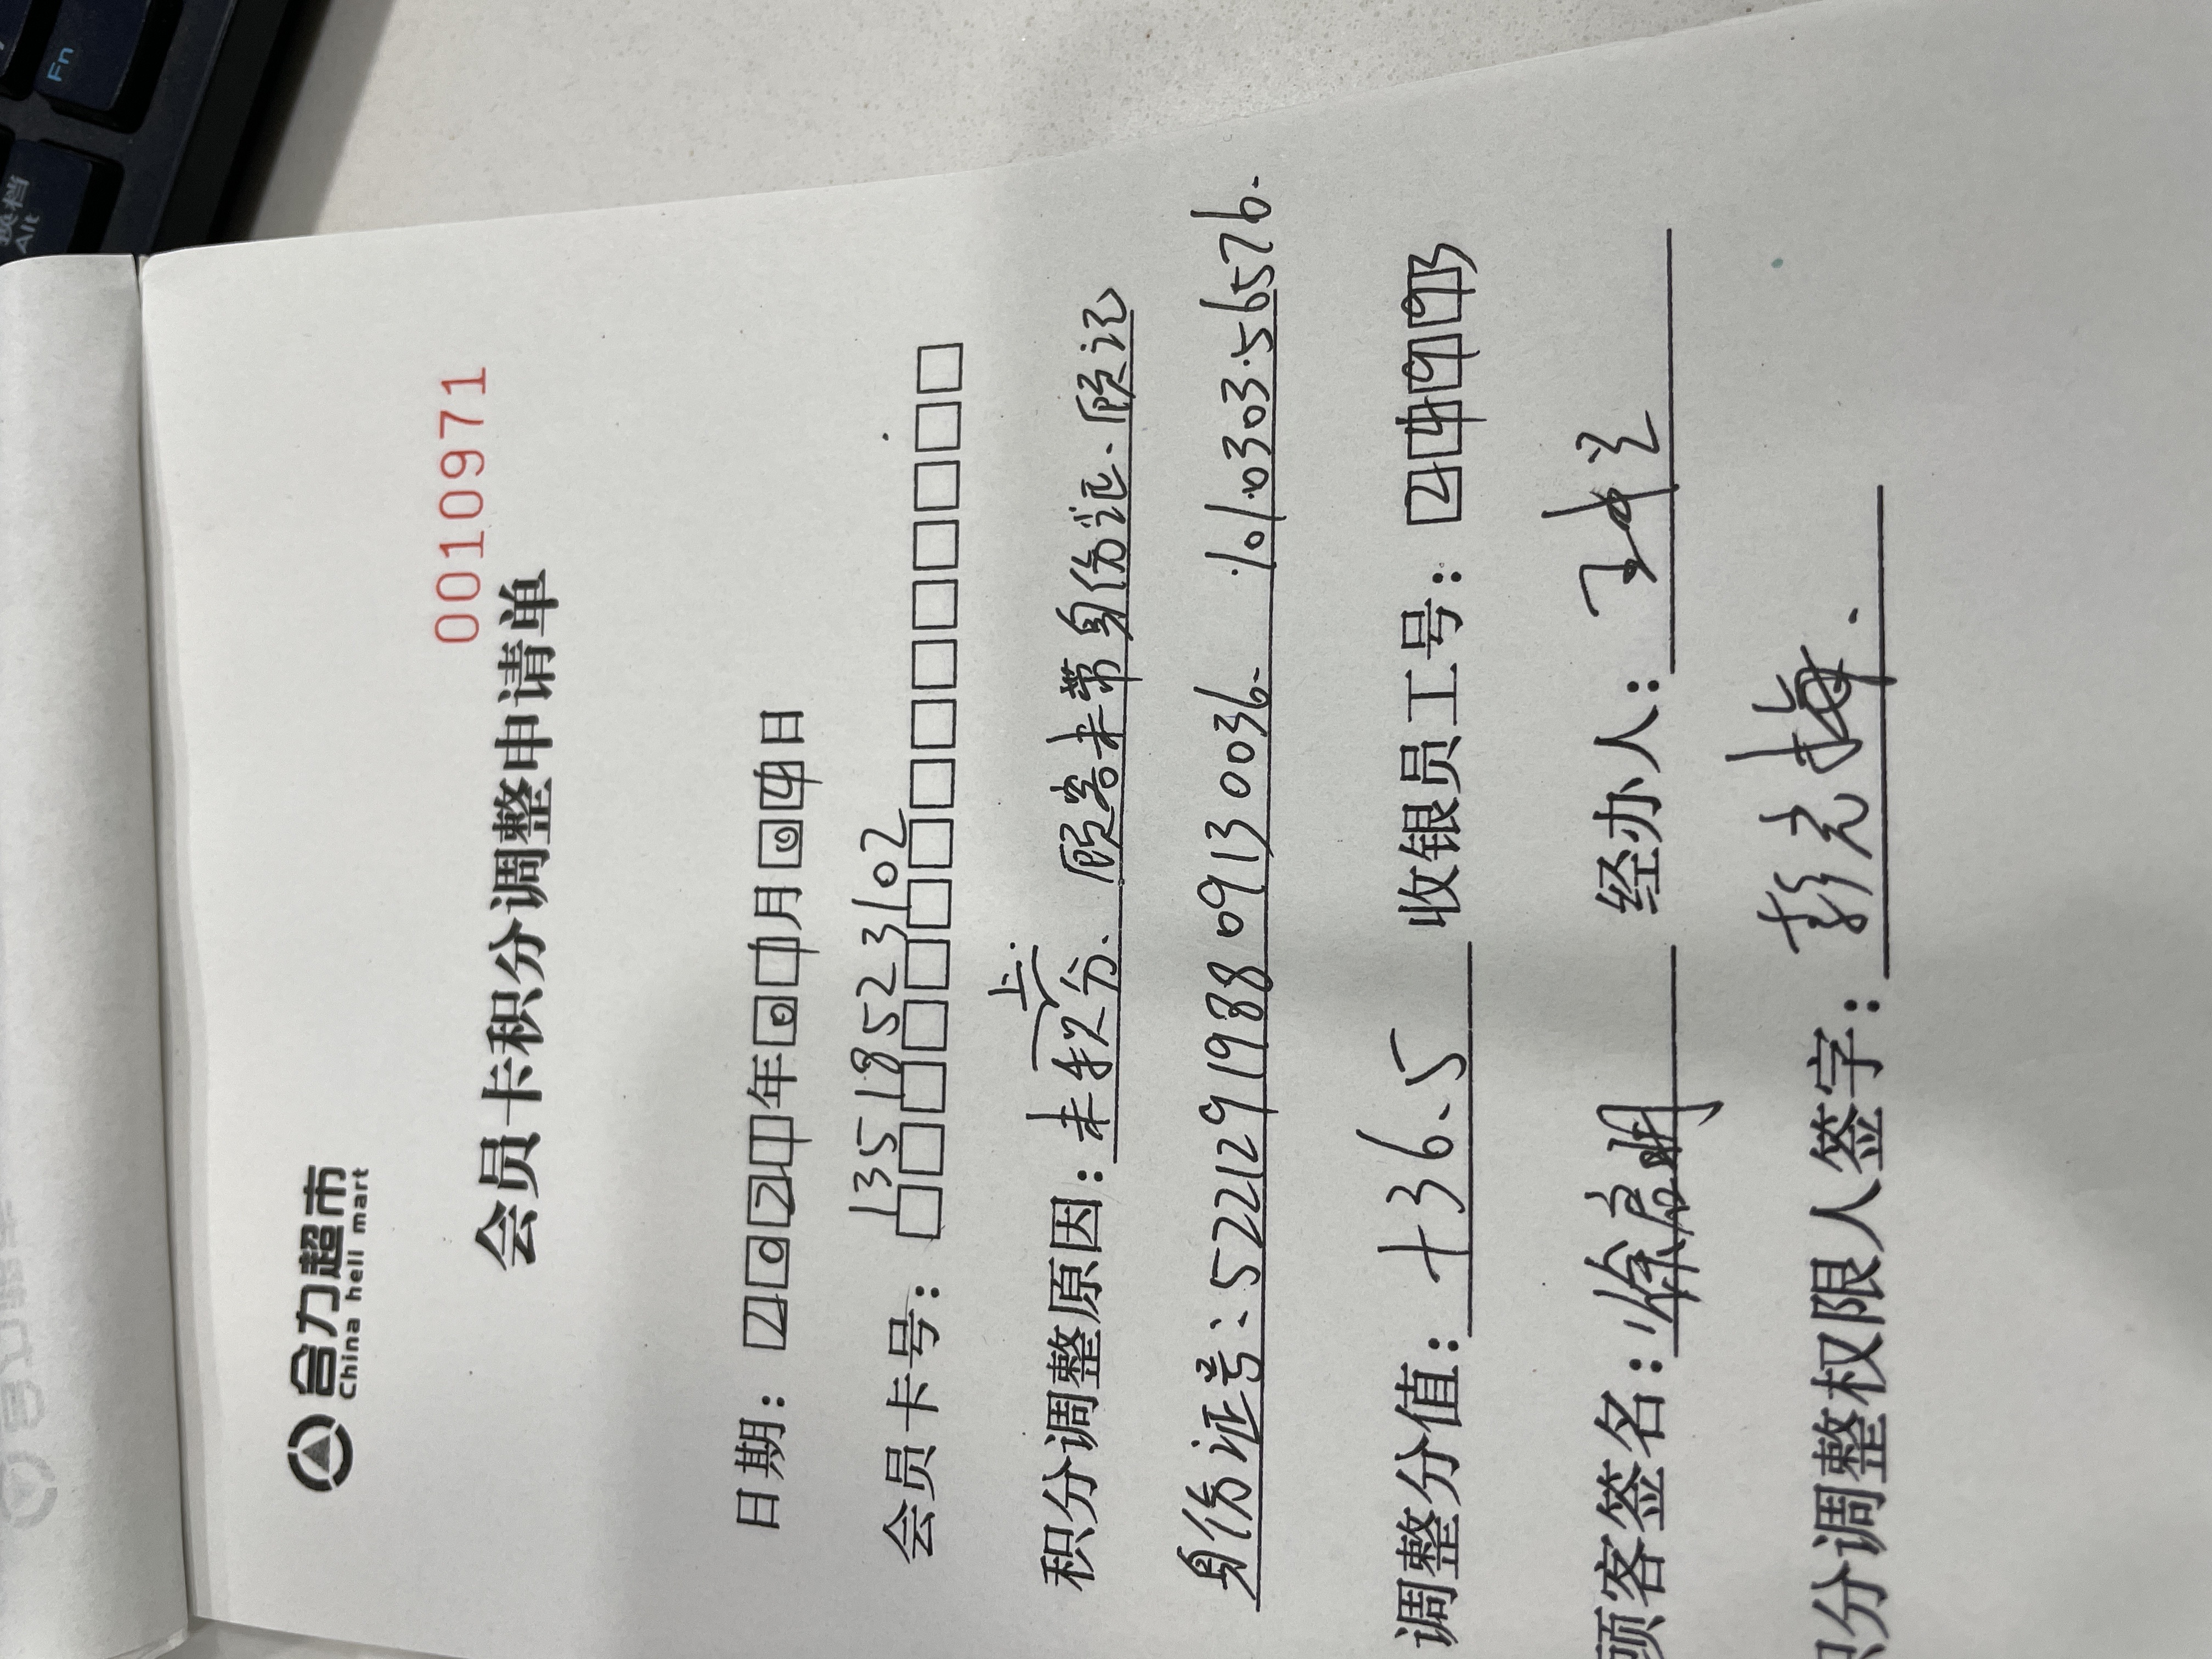 合力超市
China hell mart
0010971
会员卡积分调整申请单
日期：2024年01月04日
会员卡号：13518523102
积分调整原因：未积上分、顾客未带身份证、顾记
身份证号：522129198809130036. 101.0303.56576.
调整分值：+36.5 收银员工号：24993
顾客签名：徐启明 经办人：
积分调整权限人签字：彭光梅.
Fn
换档
Alt